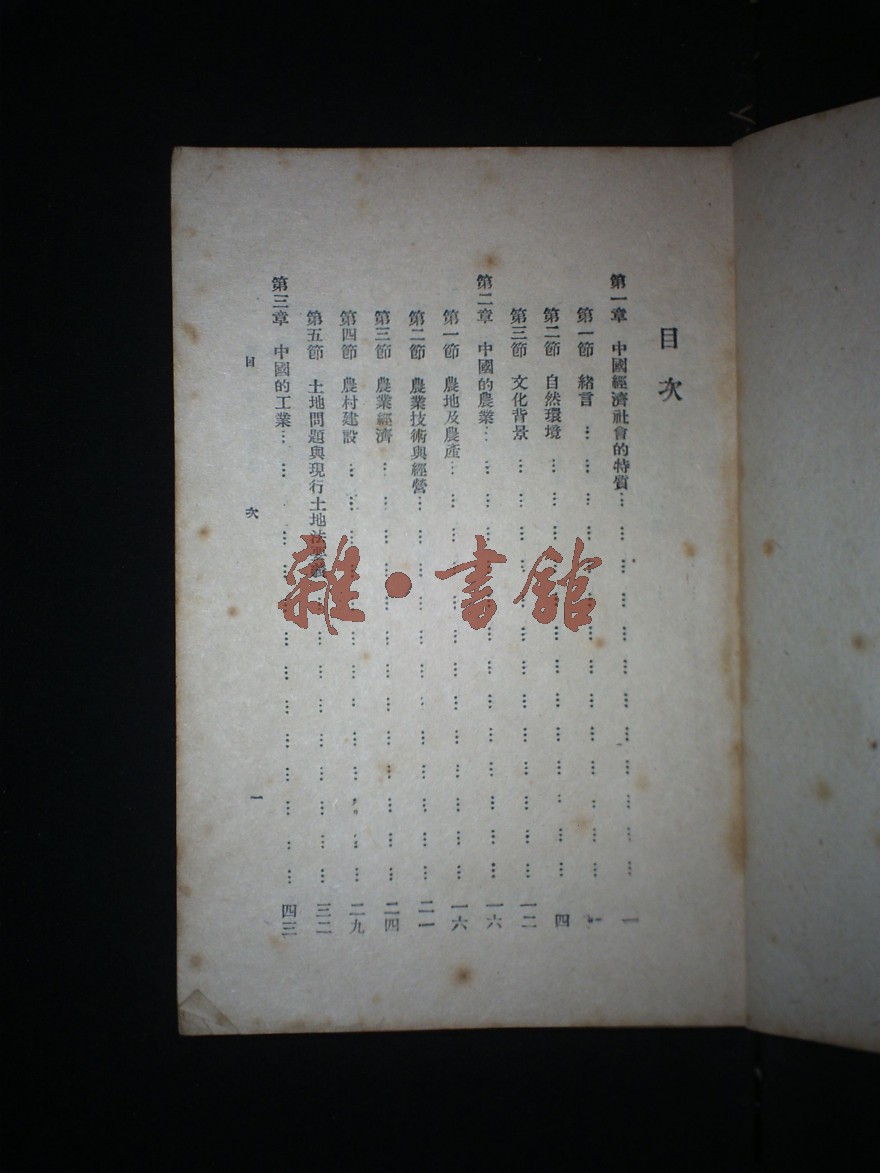 目次
第一章 中國經濟社會的特質 一
第一節 緒言 一
第二節 自然環境 四
第三節 文化背景 一二
第二章 中國的農業 一六
第一節 農地及農產 一六
第二節 農業技術與經營 二一
第三節 農業經濟 二四
第四節 農村建設 二九
第五節 土地問題與現行土地法 三二
第三章 中國的工業 四三
目次 一
雜·書館